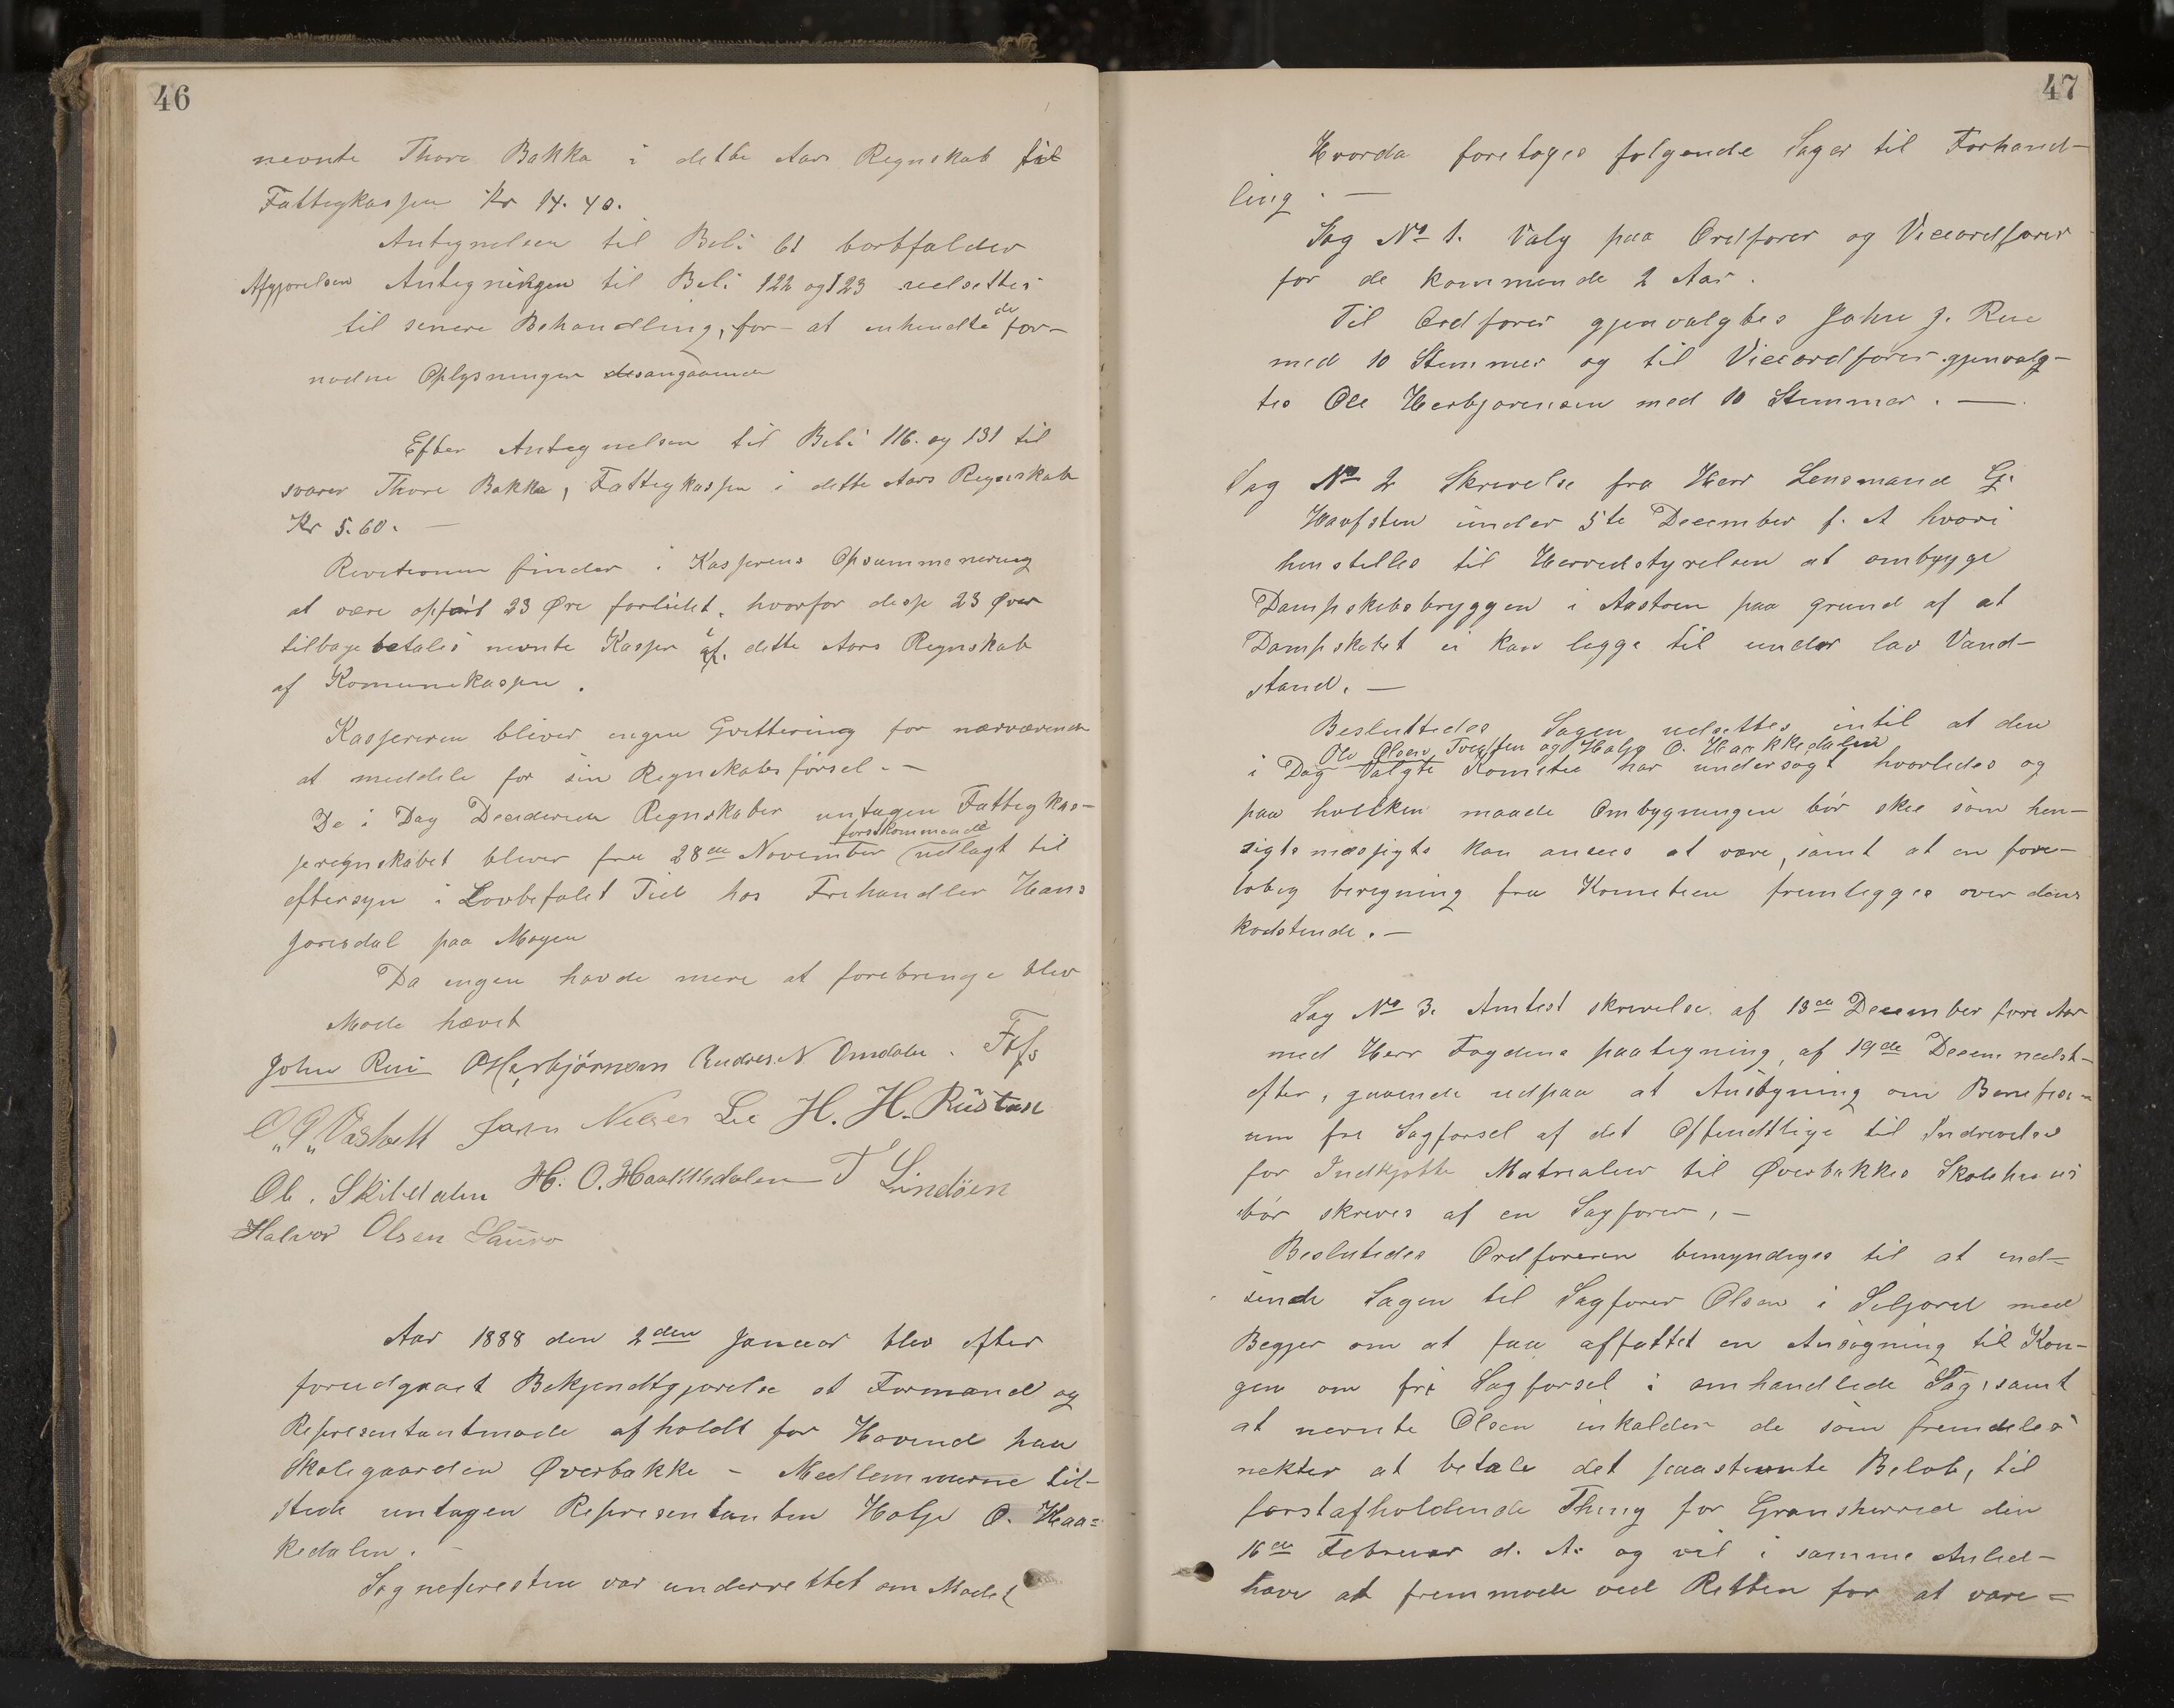 46
nevnte Thore Bakka i dette Aars Regnskab til
Fattigkassen Kr 14.40.
Antegnelsen til Beb: 61 bortfalder
Afgjørelsen Antegningen til Beb: 122 og 123 udsettes
til senere Behandling, for at inhendte de for-
nødne Oplysninger desangaaende
Efter Antegnelsen til Beb: 116. og 131 til
svarer Thore Bakka, Fattigkassen i dette Aars Regnskab
Kr 5.60. —
Revitionen finder i Kasserens Opsummenering
at være opført 23 Øre forlidet, hvorfor disse 23 Ører
tilbagebetales nevnte Kasser i dette Aars Regnskab
af Komunekassen.
Kassereren bliver ingen Qvittering for nærværende
at meddele for sin Regnskabsførsel. —
De i Dag Deciderede Regnskaber untagen Fattigkas-
seregnskabet bliver fra 28de November førstkommende udlagt til
eftersyn i Lovbefalet Tid hos Frihandler Hans
Jørisdal paa Mogen
Da ingen havde mere at forebringe blev
Mode hævet
John Rui OHerbjörnsen Endres. N. Omdale.
H. H. Rústan
Ole. Skildalen H. O. Haakkedalen T Lindöen
Halvor Olsen Sauro
Aar 1888 den 2den Januar blev efter
forudgaaet Bekjendtgjørelse et Formand og
Representantmøde afholdt for Hovind paa
Skolegaarden Øverbakke – Medlemmerne til-
stede untagen Representanten Holje O. Haa=
kedalen. –
Sognepresten var underrettet om Mødet
47
Hvorda foretoges følgende Sager til Forhand-
ling. —
Sag No 1. Valg paa Ordfører og Viceordfører
for de kommende 2 Aar.
Til Ordfører gjenvalgtes John J. Rue
med 10 Stemmer og til Viceordfører gjenvalg-
tes Ole Herbjørensen med 10 Stemmer. —
Sag No 2 Skrivelse fra Herr Lensmand G.
Haafsten under 5te December f. A hvori
henstilles til Herredstyrelsen at ombygge
Dampskibsbryggen i Aastøen paa grund af at
Dampskibet ei kan legge til under lav Vand-
stand. —
Besluttedes Sagen udsettes intil at den
Ole Olsen og Holje O. Haakkedalen
i Dag Valgte Komitee har undersøgt hvorledes og
paa hvilken maade Ombygningen bör skee som hen-
sigtsmæssigts kan ansees at være, samt at en fore-
løbig beregning fra Komiteen fremlegges over dens
Kostende. —
Sag No 3. Amtest skrivelse af 13de December forr Aar
med Herr Fogdens paategning, af 19de Decem nædst-
efter, gaaende udpaa at Ansøgning om Benefice-
um fri Sagførsel af det Offendtlige til Indrivelse
for Indkjøbte Matrialier til Øverbakkes Skolehuus
bör skrives af en Sagfører, –
Beslutedes Ordføreren bemyndiges til at ind-
sende Sagen til Sagfører Olsen i Seljord med
Begjer om at faa affattet en Ansøgning til Kon-
gen om fri Sagførsel i omhandlede Sag, samt
at nevnte Olsen inkalder de som fremdeles
nekter at betale det paastevnte Beløb, til
førstafholdende Thing for Gransherred den
16de Februar d. A. og vil i samme Anled-
have at fremmøde ved Retten for at vare=